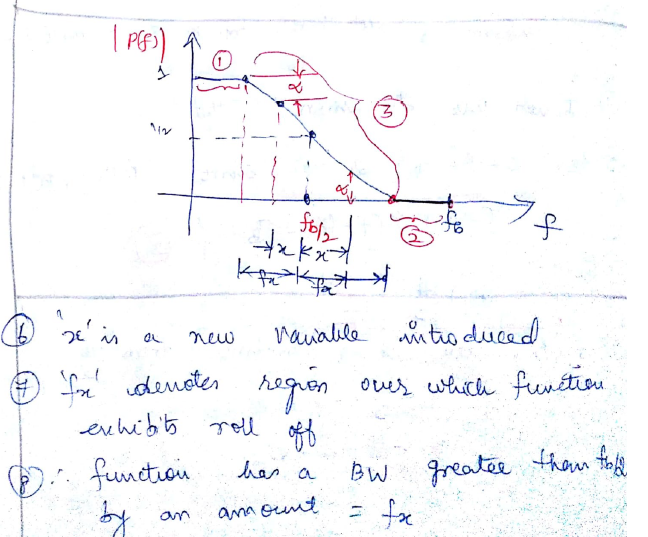 |P(f)|
①
1
α
③
1/2
α
fb/2
②
fb
f
x x
fx fx
⑥ 'x' is a new variable introduced
⑦ 'fx' denotes region over which function
exhibits roll off
⑧ ∴ function has a BW greater than fb/2
by an amount = fx